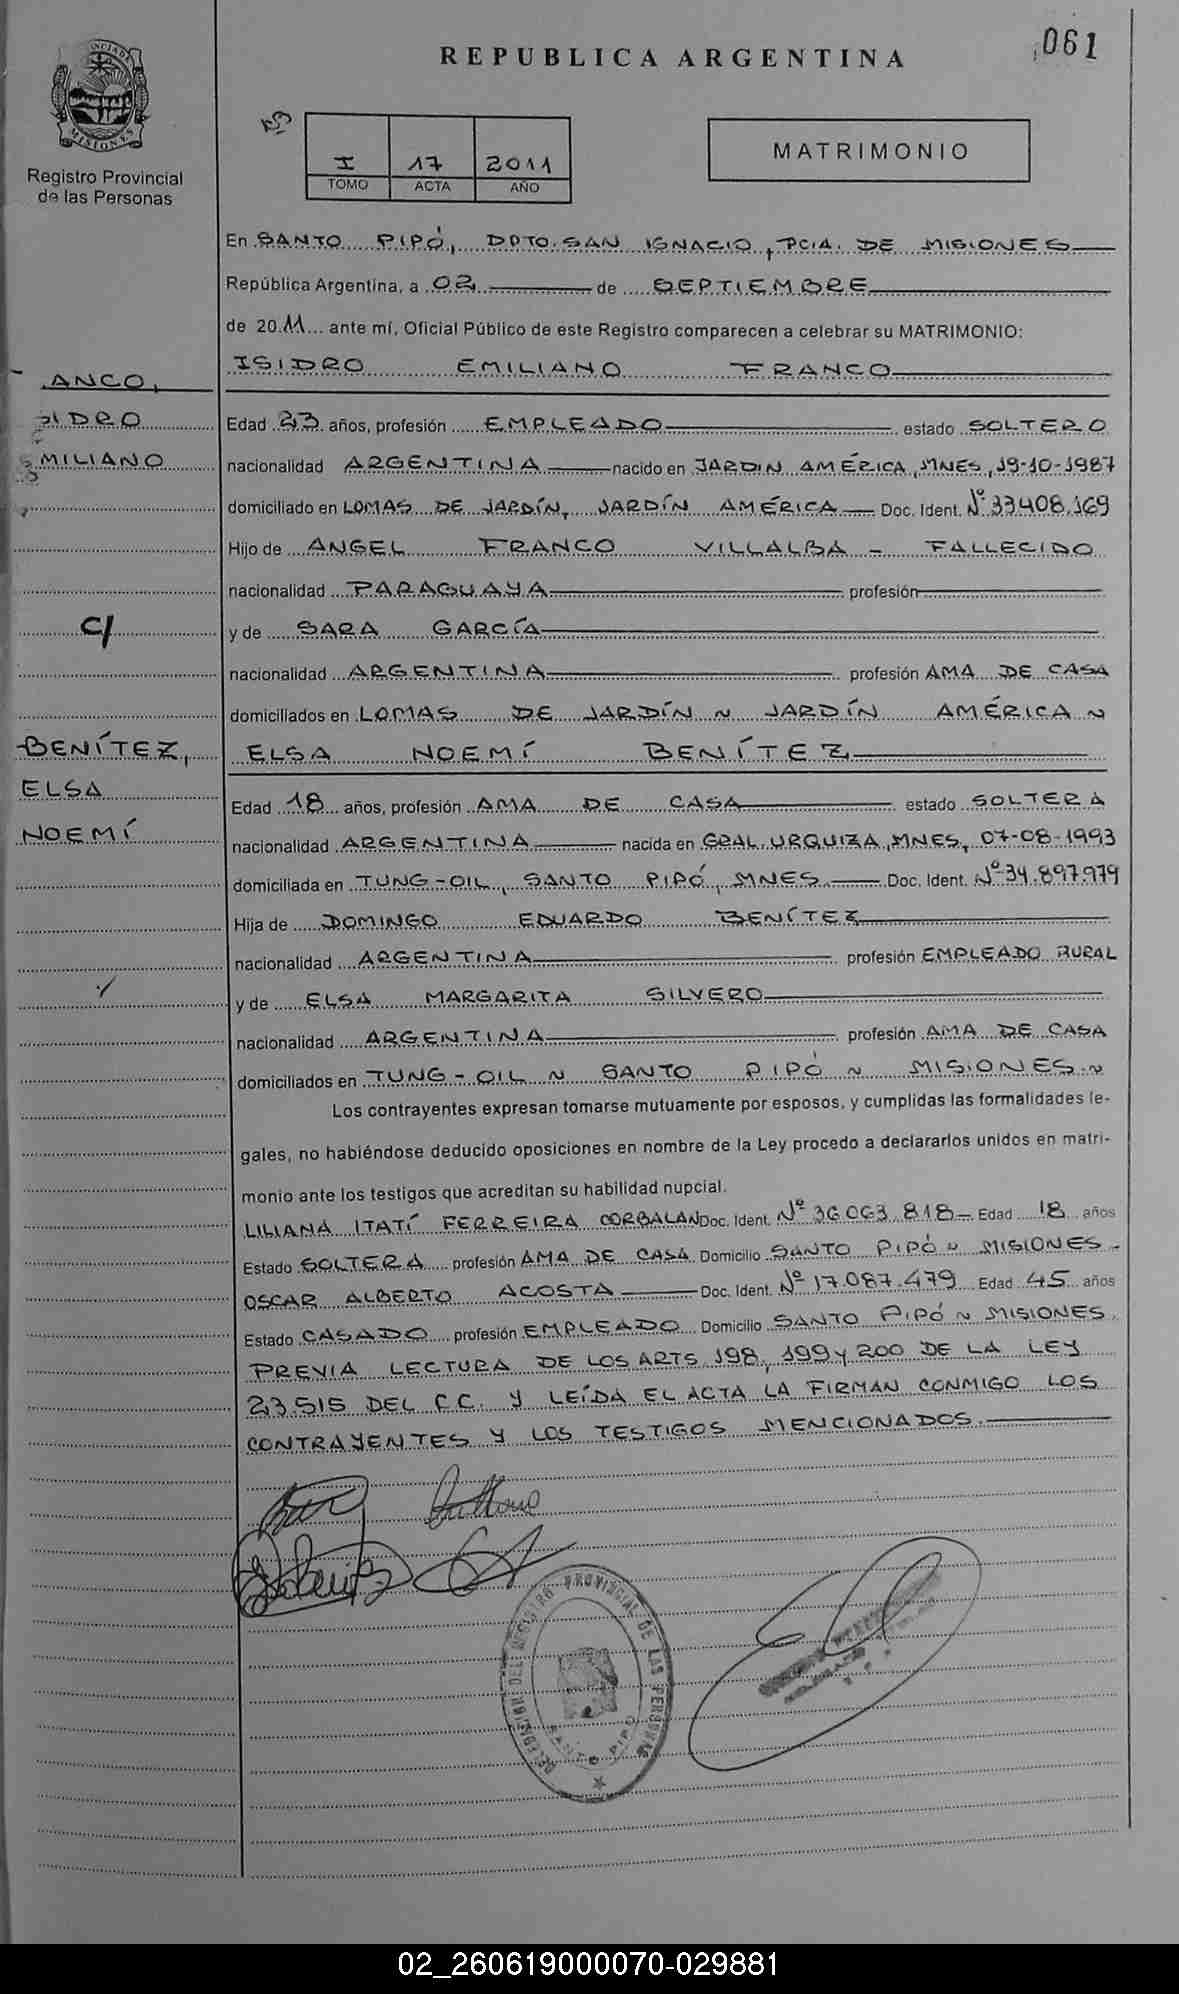 REPUBLICA ARGENTINA
061
MISIONES
Registro Provincial
de las Personas
I 17 2011
TOMO ACTA AÑO
MATRIMONIO
En SANTO PIPÓ, DPTO. SAN IGNACIO, PCIA. DE MISIONES
República Argentina, a 02 de SEPTIEMBRE
de 2011 ante mí, Oficial Público de este Registro comparecen a celebrar su MATRIMONIO:
ISIDRO EMILIANO FRANCO
ANCO,
IDRO
MILIANO
C/
BENÍTEZ,
ELSA
NOEMÍ
Edad 23 años, profesión EMPLEADO estado SOLTERO
nacionalidad ARGENTINA nacido en JARDIN AMÉRICA, MNES, 19-10-1987
domiciliado en LOMAS DE JARDÍN, JARDÍN AMÉRICA Doc. Ident. Nº 33.408.169
Hijo de ANGEL FRANCO VILLALBA - FALLECIDO
nacionalidad PARAGUAYA profesión
y de SARA GARCÍA
nacionalidad ARGENTINA profesión AMA DE CASA
domiciliados en LOMAS DE JARDÍN ~ JARDÍN AMÉRICA ~
ELSA NOEMÍ BENÍTEZ
Edad 18 años, profesión AMA DE CASA estado SOLTERA
nacionalidad ARGENTINA nacida en GRAL. URQUIZA, MNES, 07-08-1993
domiciliada en TUNG-OIL, SANTO PIPÓ, MNES. Doc. Ident. Nº 34.897.979
Hija de DOMINGO EDUARDO BENÍTEZ
nacionalidad ARGENTINA profesión EMPLEADO RURAL
y de ELSA MARGARITA SILVERO
nacionalidad ARGENTINA profesión AMA DE CASA
domiciliados en TUNG-OIL ~ SANTO PIPÓ ~ MISIONES.~
Los contrayentes expresan tomarse mutuamente por esposos, y cumplidas las formalidades le-
gales, no habiéndose deducido oposiciones en nombre de la Ley procedo a declararlos unidos en matri-
monio ante los testigos que acreditan su habilidad nupcial.
LILIANA ITATÍ FERREIRA CORBALAN Doc. Ident. Nº 36.063.818- Edad 18 años
Estado SOLTERA profesión AMA DE CASA Domicilio SANTO PIPÓ ~ MISIONES.
OSCAR ALBERTO ACOSTA Doc. Ident. Nº 17.087.479 Edad 45 años
Estado CASADO profesión EMPLEADO Domicilio SANTO PIPÓ ~ MISIONES.
PREVIA LECTURA DE LOS ARTS. 198, 199 y 200 DE LA LEY
23.515 DEL C.C. Y LEÍDA EL ACTA LA FIRMAN CONMIGO LOS
CONTRAYENTES Y LOS TESTIGOS MENCIONADOS.
DELEGACION DEL REGISTRO PROVINCIAL DE LAS PERSONAS
SANTO PIPO
02_260619000070-029881